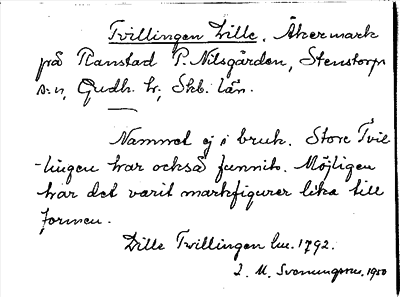 Tvillingen Lille. Åkermark
på Ranstad P. Nilsgården, Stenstorps
s:n, Gudh. hr; Skb. län.
Namnet ej i bruk. Store Tvil-
-lingen har också funnits. Möjligen
har det varit markfigurer lika till
formen.
Lille Tvillingen lm. 1792.
J. M. Svenungsson. 1950